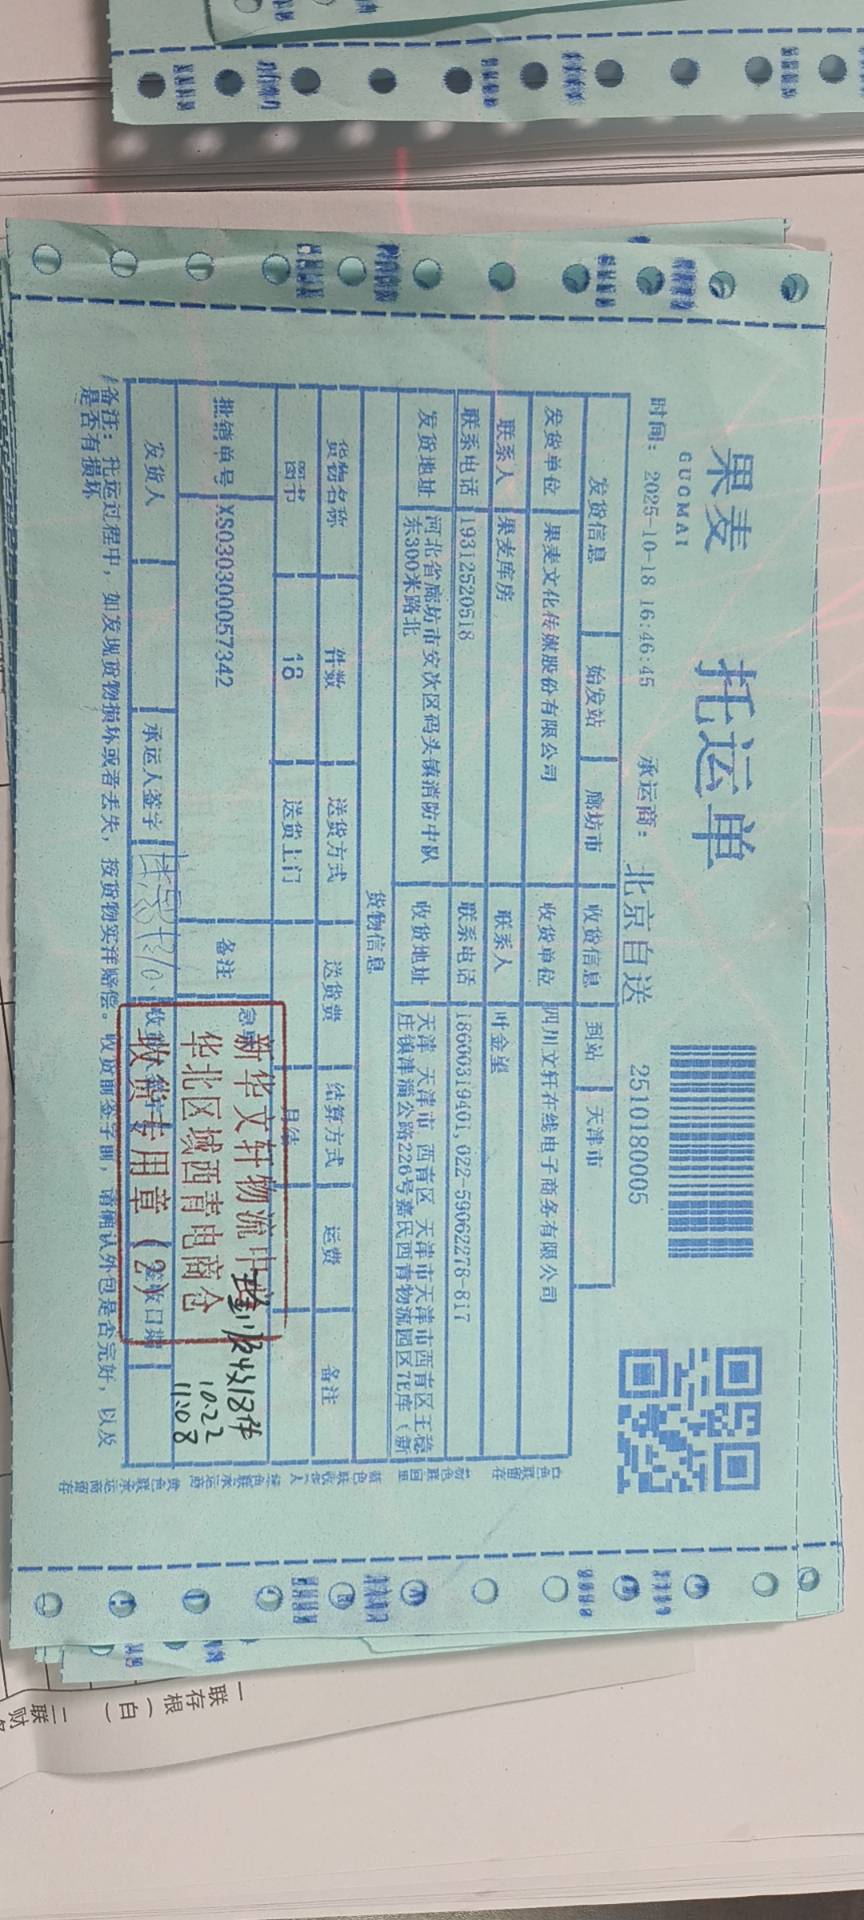 果麦
GUOMAI
托运单
时间： 2025-10-18 16:46:45
承运商： 北京自送
2510180005
发货信息 始发站 廊坊市 收货信息 到站 天津市
发货单位 果麦文化传媒股份有限公司 收货单位 四川文轩在线电子商务有限公司
联系人 果麦库房 联系人 叶金望
联系电话 19312520518 联系电话 18600319401, 022-59062278-817
发货地址 河北省廊坊市安次区码头镇消防中队
东300米路北
收货地址 天津 天津市 西青区 天津市天津市西青区王稳
庄镇津淄公路226号嘉民西青物流园区7E库（新
货物信息
货物名称 件数 送货方式 送货费 结算方式 运费 备注
图书 18 送货上门 月结
批销单号 XS030300057342 备注
发货人 承运人签字 签收日期
新华文轩物流中
华北区域西青电商仓
收货专用章（2）
收18件
10.22
11:08
备注：托运过程中，如发现货物损坏或者丢失，按货物实洋赔偿。收货前签字前，请确认外包是否完好，以及
是否有损坏
一联
存根
（白）
二联
财